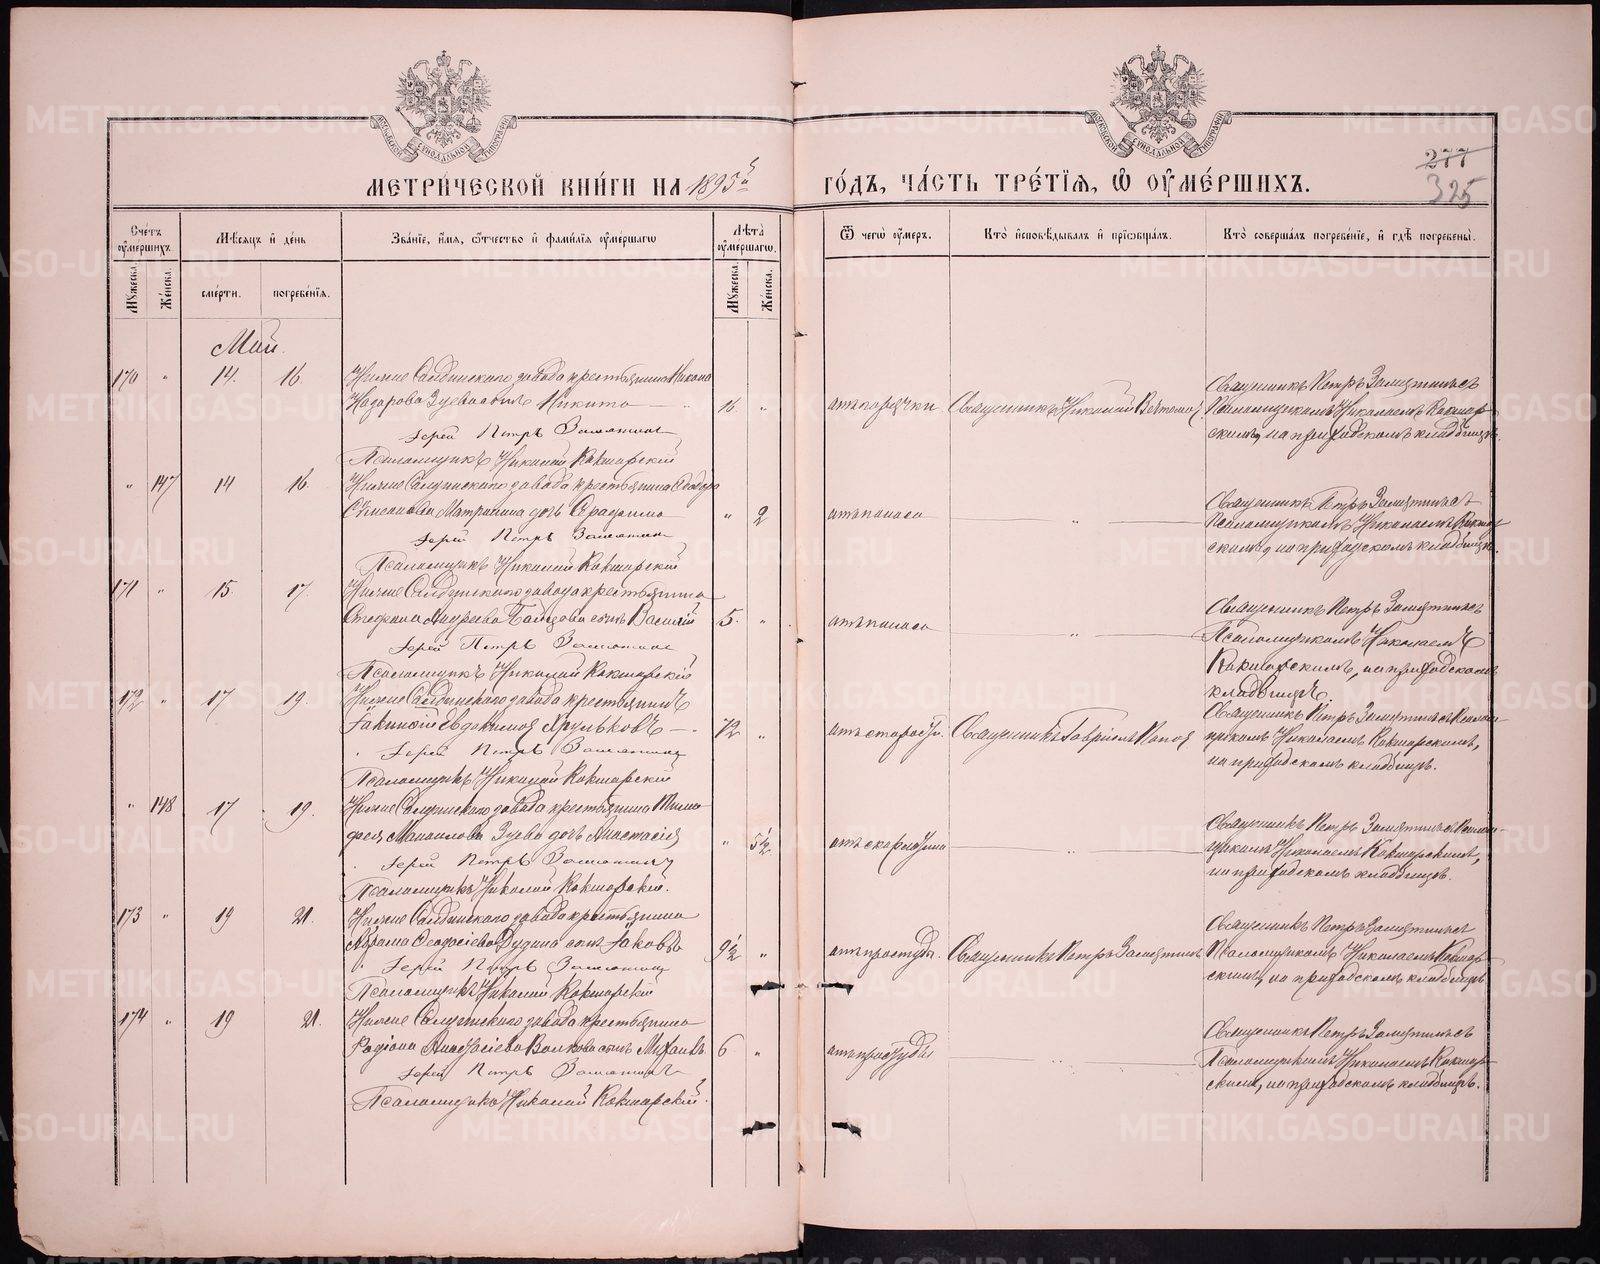 МЕТРИЧЕСКОЙ КНИГИ НА 1895й
ГОДЪ, ЧАСТЬ ТРЕТІЯ, Ѡ ОУМЕРШИХЪ.
277
325
Счетъ оумершихъ.
Мѣсяцъ и день
Званіе, имя, отчество и фамилія оумершагѡ
Лѣта оумершагѡ.
Ѿ чегѡ оумеръ.
Кто исповѣдывалъ и пріобщалъ.
Кто совершалъ погребеніе, и гдѣ погребены.
Мужеска.
Женска.
смерти.
погребенія.
Мужеска.
Женска.
Май.
170 " 14. 16.
Нижне Салдинскаго завода крестьянина Никона
Назарова Зуева сынъ Никита 16 "
отъ горячки
Священникъ Николай
Священникъ Петръ Замятинъ съ
Псаломщикомъ Николаемъ Кокшар-
скимъ, на приходскомъ кладбищѣ.
Іерей Петръ Замятинъ
Псаломщикъ Николай Кокшарскій
" 147 14 16
Нижне Салдинскаго завода крестьянина Ѳеодора
Симеонова Матрипина дочь Серафима " 2
отъ поноса
"
Священникъ Петръ Замятинъ съ
Псаломщикомъ Николаемъ Кокшар-
скимъ, на приходскомъ кладбищѣ.
Іерей Петръ Замятинъ
Псаломщикъ Николай Кокшарскій
171 " 15. 17.
Нижне Салдинскаго завода крестьянина
Стефана Андреева сынъ Василій 5. "
отъ поноса
"
Священникъ Петръ Замятинъ съ
Псаломщикомъ Николаемъ
Кокшарскимъ, на приходскомъ
кладбищѣ.
Іерей Петръ Замятинъ
Псаломщикъ Николай Кокшарскій
172 " 17 19.
Нижне Салдинскаго завода крестьянинъ
Іакинѳій Евдокимовъ Хрульковъ 72 "
отъ старости.
Священникъ Гавріилъ Поповъ
Священникъ Петръ Замятинъ съ Псалом-
щикомъ Николаемъ Кокшарскимъ,
на приходскомъ кладбищѣ.
Іерей Петръ Замятинъ
Псаломщикъ Николай Кокшарскій
" 148 17 19.
Нижне Салдинскаго завода крестьянина Тимо-
фея Мануилова Зуева дочь Анастасія " 5½
отъ скарлатины
"
Священникъ Петръ Замятинъ съ Псалом-
щикомъ Николаемъ Кокшарскимъ,
на приходскомъ кладбищѣ.
Іерей Петръ Замятинъ
Псаломщикъ Николай Кокшарскій.
173 " 19 21.
Нижне Салдинскаго завода крестьянина
Абрама Ѳеодосіева Дудина сынъ Іаковъ 9½ "
отъ простуды.
Священникъ Петръ Замятинъ
Священникъ Петръ Замятинъ съ
Псаломщикомъ Николаемъ Кокшар-
скимъ, на приходскомъ кладбищѣ
Іерей Петръ Замятинъ
Псаломщикъ Николай Кокшарскій
174 " 19 21.
Нижне Салдинскаго завода крестьянина
Родіона Анастасіева Волкова сынъ Михаилъ. 6 "
отъ простуды
Священникъ Петръ Замятинъ съ
Псаломщикомъ Николаемъ Кокшар-
скимъ, на приходскомъ кладбищѣ.
Іерей Петръ Замятинъ
Псаломщикъ Николай Кокшарскій.
METRIKI.GASO-URAL.RU